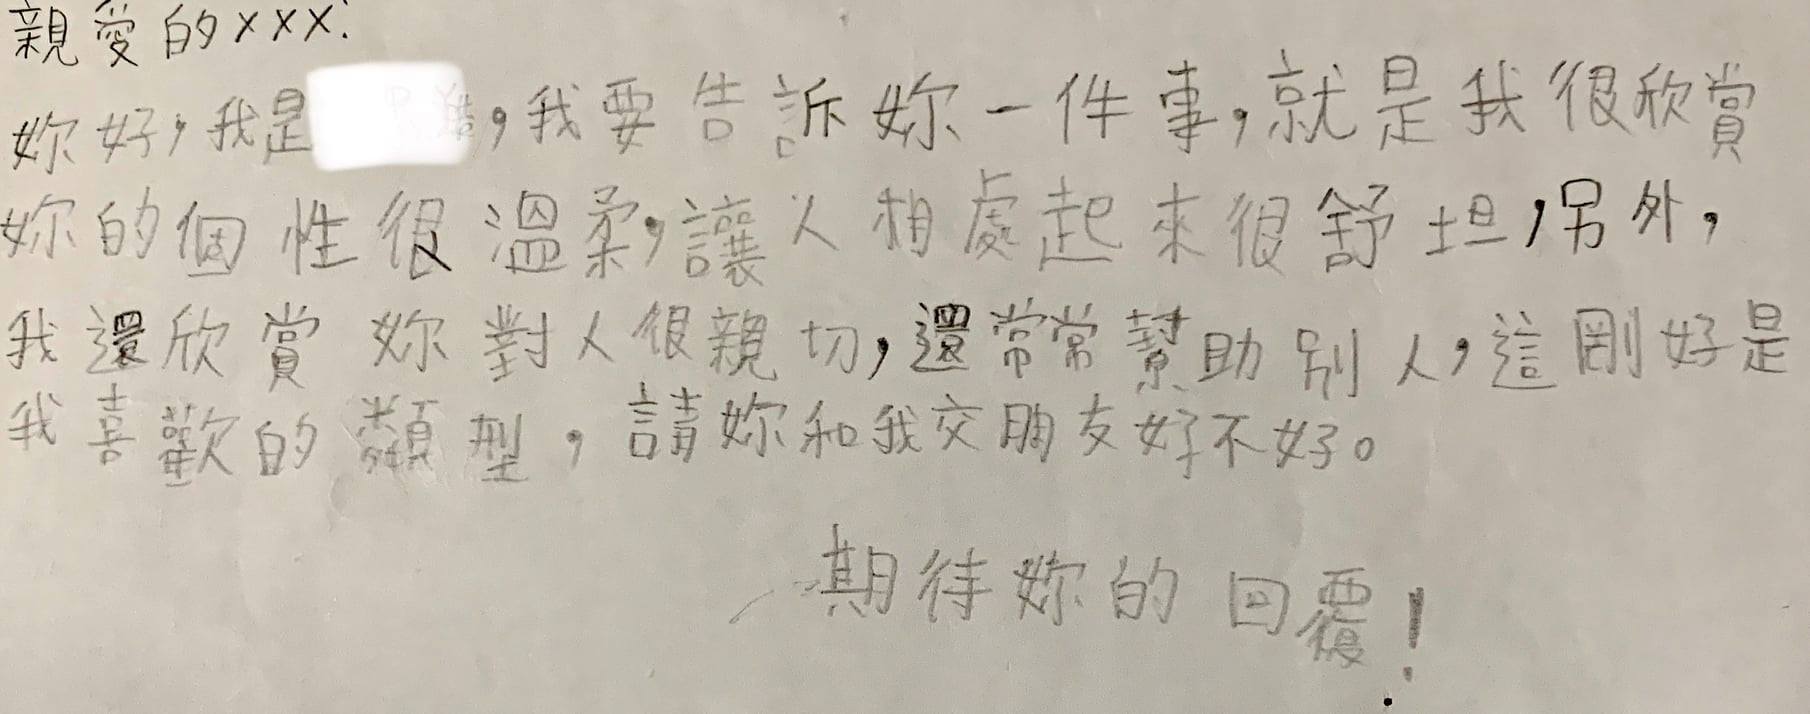 親愛的xxx:
妳好，我是，我要告訴妳一件事，就是我很欣賞
妳的個性很溫柔，讓人相處起來很舒坦，另外，
我還欣賞妳對人很親切，還常常幫助別人，這剛好是
我喜歡的類型，請妳和我交朋友好不好。
期待妳的回覆！